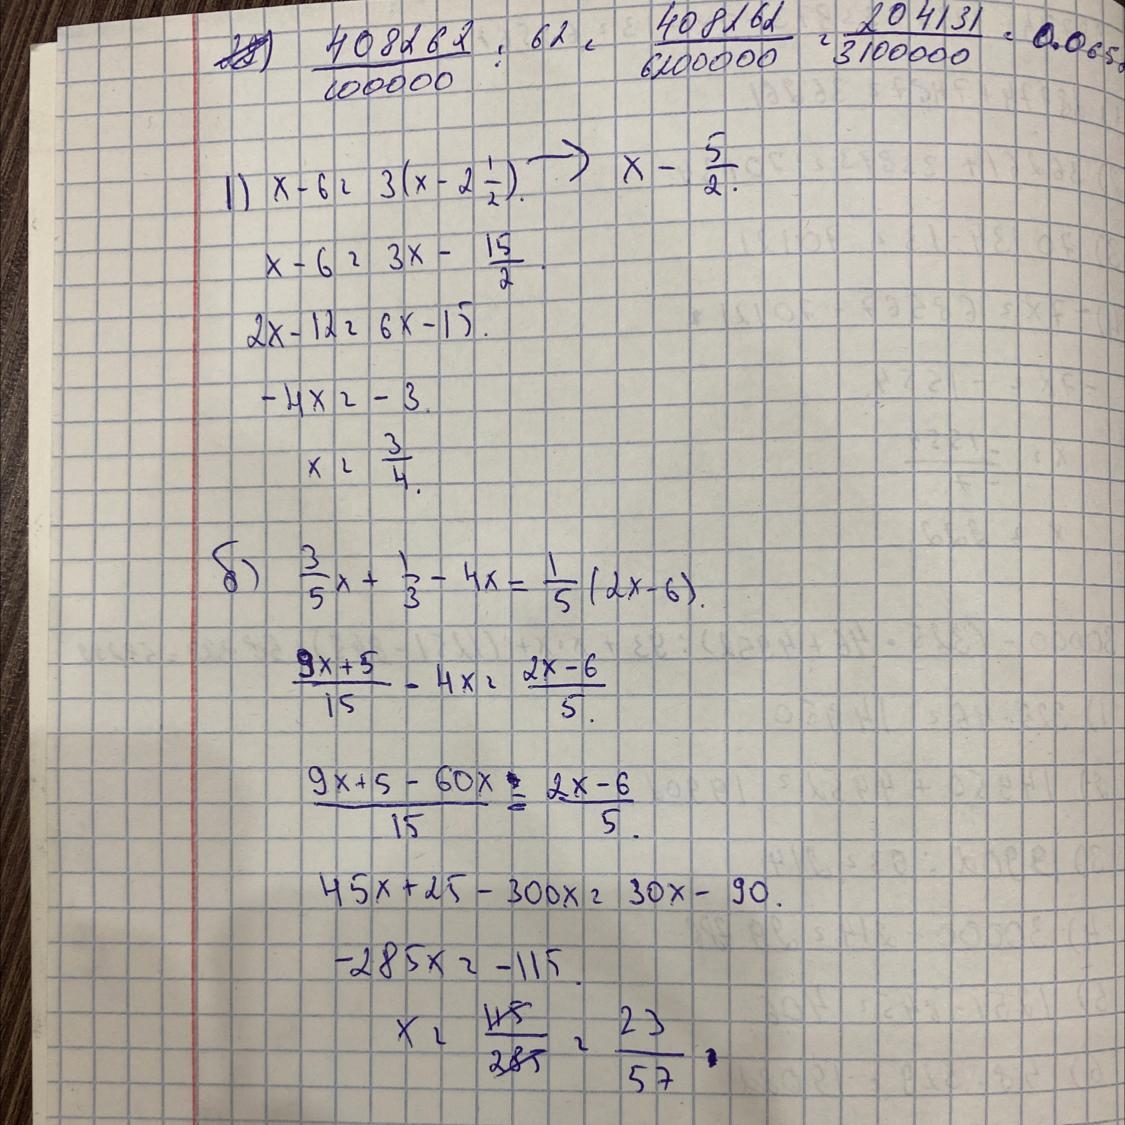 408262/100000 : 62 = 408262/6200000 = 204131/3100000 = 0.065
1) x - 6 = 3(x - 2 1/2). → x - 5/2.
x - 6 = 3x - 15/2.
2x - 12 = 6x - 15.
-4x = -3.
x = 3/4.
б) 3/5 x + 1/3 - 4x = 1/5 (2x - 6).
9x+5/15 - 4x = 2x-6/5.
9x+5-60x/15 = 2x-6/5.
45x + 25 - 300x = 30x - 90.
-285x = -115.
x = 115/285 = 23/57.